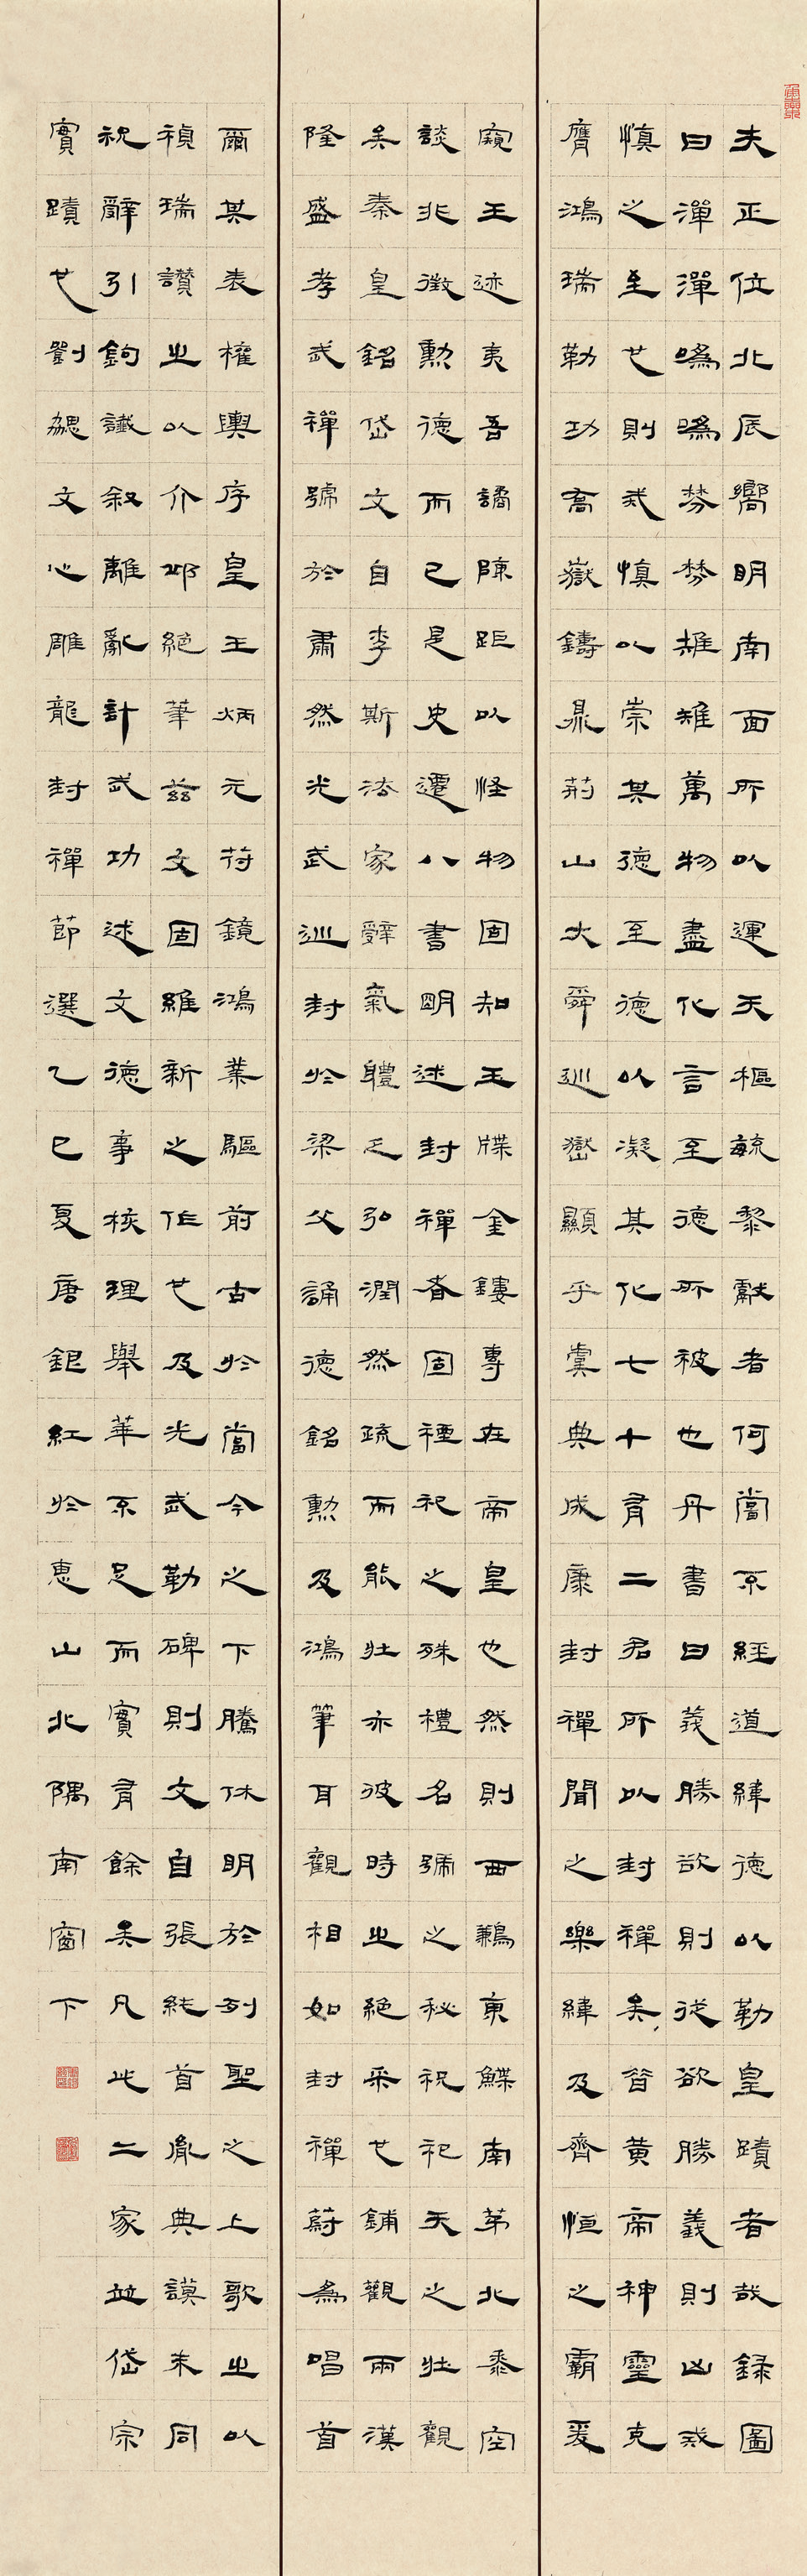 夫正位北辰嚮明南面所以運天樞毓黎獻者何嘗不經道緯德以勒皇蹟者哉録圖
曰潬潬噅噅棼棼雉雉萬物盡化言至德所被也丹書曰義勝欲則從欲勝義則凶戒
慎之至也則戒慎以崇其德至德以凝其化七十有二君所以封禪矣昔黃帝神靈克
膺鴻瑞勒功喬嶽鑄鼎荊山大舜巡嶽顯乎虞典成康封禪聞之樂緯及齊恒之霸爰
窺王迹夷吾譎陳距以怪物固知玉牒金鏤專在帝皇也然則西鶼東鰈南茅北黍空
談非徵勳德而已是史遷八書明述封禪者固禋祀之殊禮名號之秘祝祀天之壯觀
矣秦皇銘岱文自李斯法家辭氣體乏弘潤然疏而能壯亦彼時之絕采也鋪觀兩漢
隆盛孝武禪號於肅然光武巡封於梁父誦德銘勳及鴻筆耳觀相如封禪蔚為唱首
爾其表權輿序皇王炳元符鏡鴻業驅前古於當今之下騰休明於列聖之上歌之以
禎瑞讚之以介邱絕筆茲文固維新之作也及光武勒碑則文自張純首胤典謨末同
祝辭引鉤讖叙離亂計武功述文德事核理舉華不足而實有餘矣凡此二家並岱宗
實蹟也劉勰文心雕龍封禪節選乙巳夏唐銀紅於惠山北隅南窗下